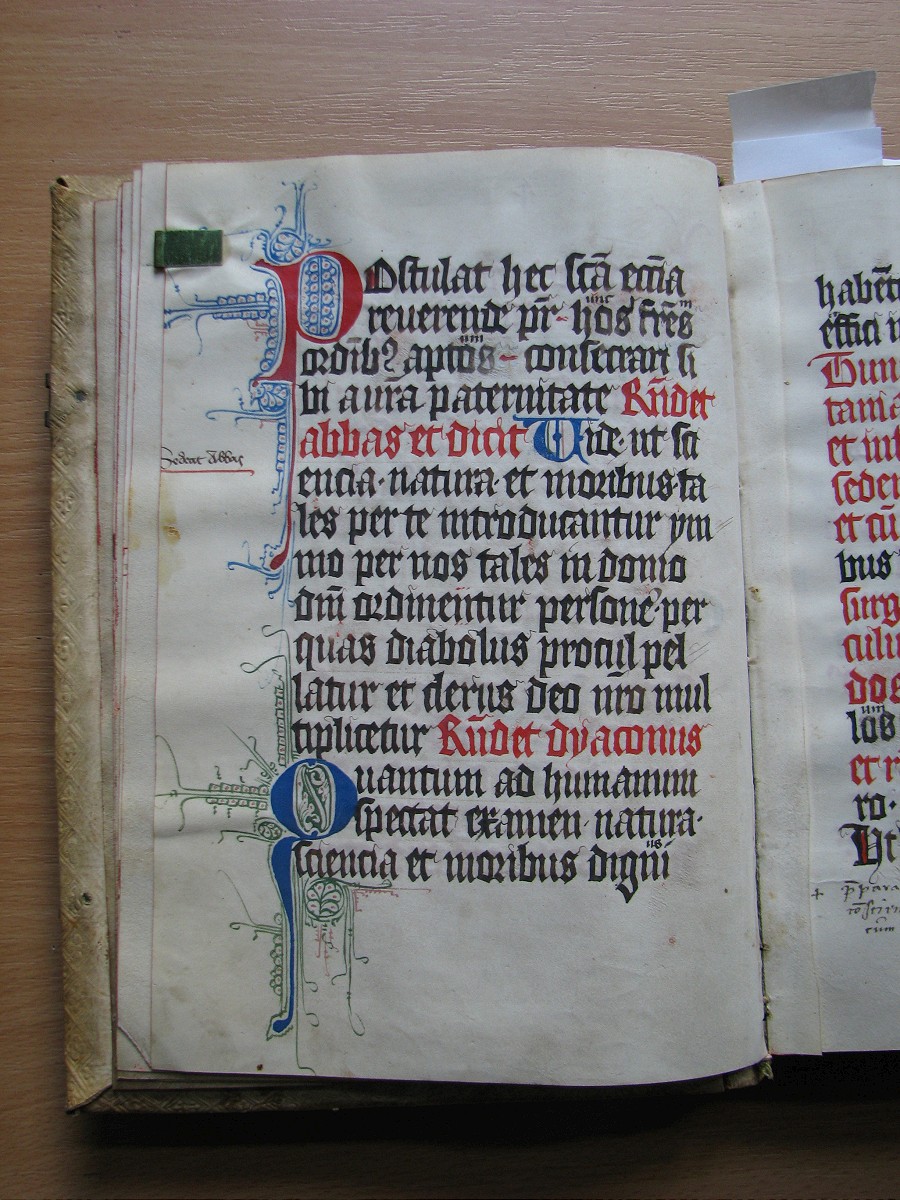 Postulat hec scā eccīa
reuerende pr̄ hos frēs
ordībꝫ aptos consecrari si
bi a ura paternitate Rn̄det
abbas et dicit Vide ut sci
encia natura et moribus ta
les per te introducantur ym
mo per nos tales in domo
dnī ordinentur persone per
quas diabolus procul pel
latur et clerus deo nr̄o mul
tiplicetur Rn̄det dyaconus
Quantum ad humanum
spectat examen natura
sciencia et moribus digni
Sedeat Abbas
habēt
effici
et
seder
et cū
bus
surg
culu
dos
los
et r
ro
Ut